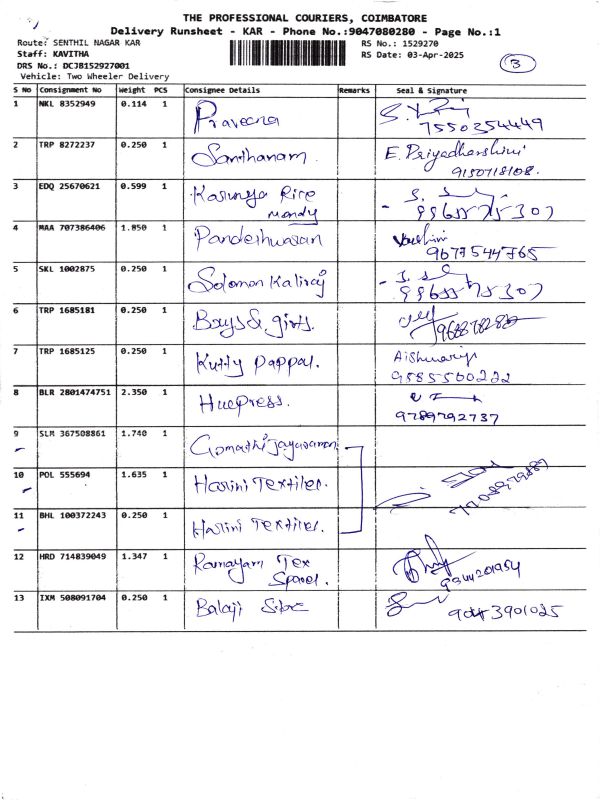 THE PROFESSIONAL COURIERS, COIMBATORE
Delivery Runsheet - KAR - Phone No.:9047080280 - Page No.:1
Route: SENTHIL NAGAR KAR RS No.: 1529270
Staff: KAVITHA RS Date: 03-Apr-2025
DRS No.: DCJB152927001 3
Vehicle: Two Wheeler Delivery
S No Consignment No Weight PCS Consignee Details Remarks Seal & Signature
1 NKL 8352949 0.114 1 Praveena
7550354449
2 TRP 8272237 0.250 1 Santhanam. E. Priyadharshini
9150718108.
3 EDQ 25670621 0.599 1 Karunya Rice
Mandy
4 MAA 707386406 1.850 1 Pandeshwaran
9677544765
5 SKL 1002875 0.250 1 Solomon Kaliraj
6 TRP 1685181 0.250 1 Boys & girls.
7 TRP 1685125 0.250 1 Kutty Pappa. Aishwariya
9585500222
8 BLR 2801474751 2.350 1 Huepress.
9789792737
9 SLM 367508861 1.740 1 Gomathi jayaraman
10 POL 555694 1.635 1 Harini Textiles.
11 BHL 100372243 0.250 1 Harini Textiles.
12 HRD 714839049 1.347 1 Ramayam Tex
9344201954
13 IXM 508091704 0.250 1 Balaji Store